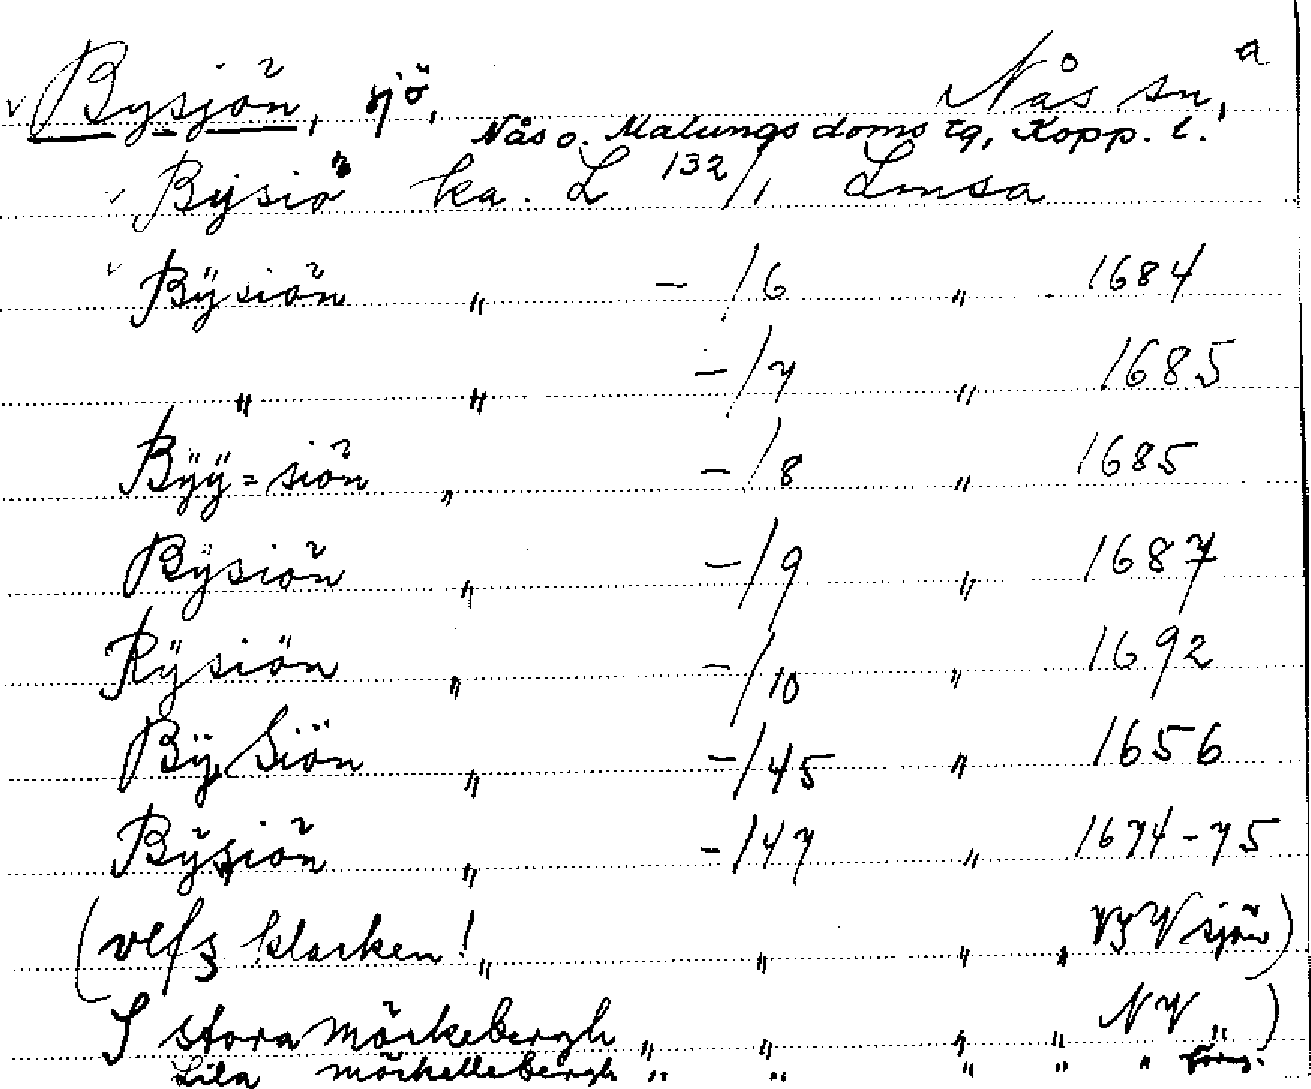 Bysjön, sjö, Nås sn, a
Nås o. Malungs doms tg, Kopp. l.
Bÿsiö ka. L 132/1 Lmsa
Bÿsiön " - /6 " 1684
" " - /7 " 1685
Bÿÿ=siön " - /8 " 1685
Bÿsiön " - /9 " 1687
Rÿsiön " - /10 " 1692
Bÿ Siön " - /45 " 1656
Bÿsiön " - /47 " 1674-75
(vlfz klacken! " " " " sjön)
stora Mörkebergh " " " " NV " )
Lila mörkellebergh " " " " "